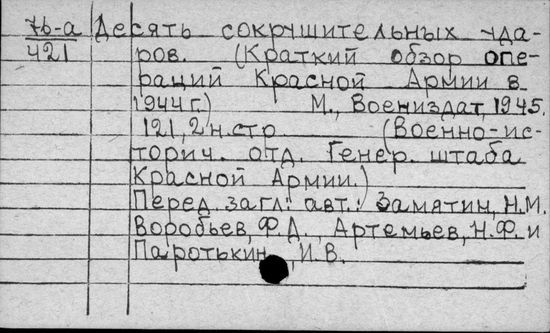 7б-а Десять сокрушительных уда-
421 ров. (Краткий обзор опе-
раций Красной Армии в
1944 г.) М., Воениздат, 1945.
121, 2 н. стр. (Военно-ис-
торич. отд. Генер. штаба
Красной Армии.)
Перед загл. авт.: Замятин, Н.М.
Воробьев, Ф.Д., Артемьев, Н.Ф. и
Паротькин, И.В.